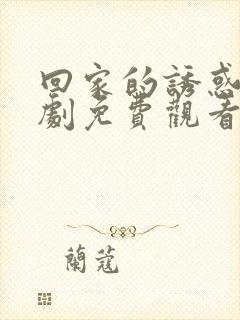 回家的誘惑
劇免費觀看
蘭蔻